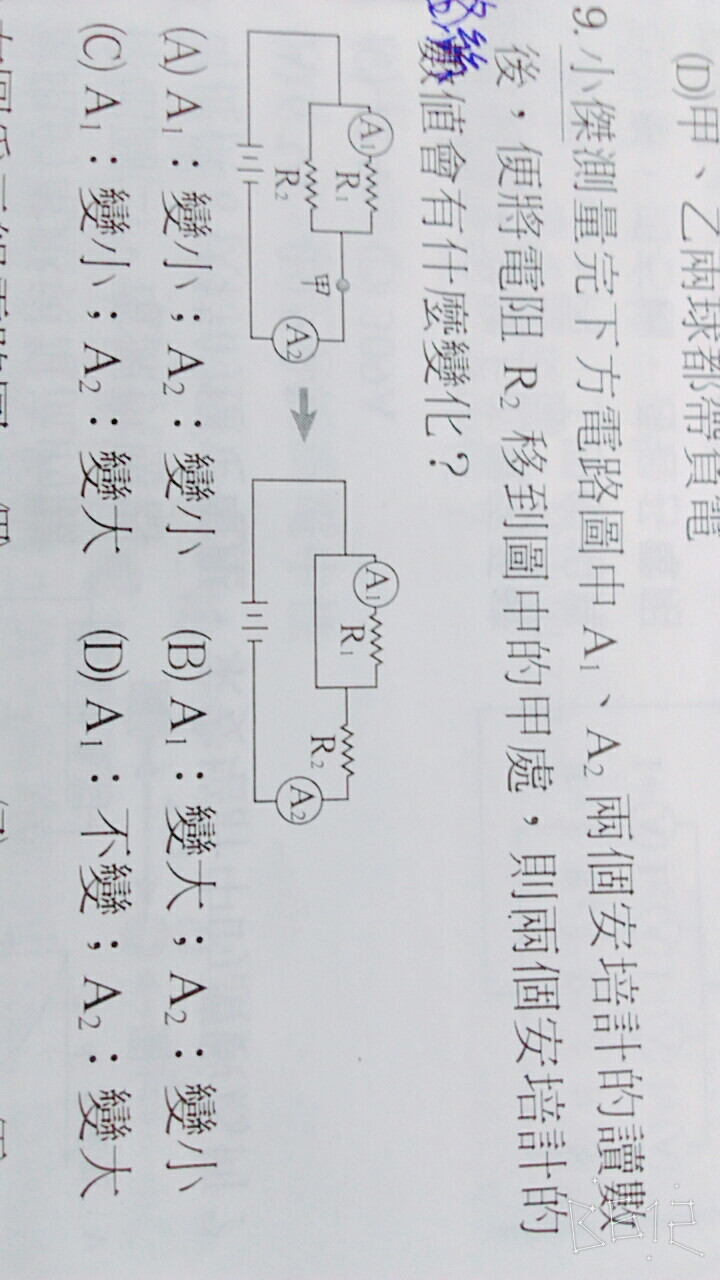 (D)甲、乙兩球都帶負電
9. 小傑測量完下方電路圖中 A₁、A₂ 兩個安培計的讀數
後，便將電阻 R₂ 移到圖中的甲處，則兩個安培計的
數值會有什麼變化？
A₁ R₁ R₂ 甲 A₂
A₁ R₁ R₂ A₂
(A) A₁：變小；A₂：變小 (B) A₁：變大；A₂：變小
(C) A₁：變小；A₂：變大 (D) A₁：不變；A₂：變大